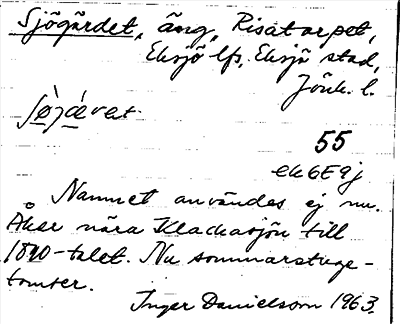 Sjögärdet, äng, Risatorpet,
Eksjö lfs, Eksjö stad,
Jönk. l.
55
ek6E9j
Namnet användes ej nu.
Åker nära Klackasjön till
1890-talet. Nu sommarstuge-
tomter.
Inger Danielsson 1963.